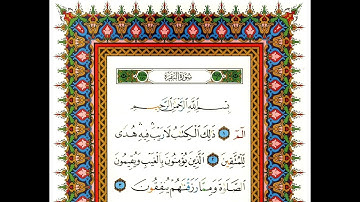 سُورَةُ البَقَرَةِ
بِسْمِ اللَّهِ الرَّحْمَٰنِ الرَّحِيمِ
الٓمٓ ١ ذَٰلِكَ الْكِتَٰبُ لَا رَيْبَ فِيهِ هُدًى
لِّلْمُتَّقِينَ ٢ الَّذِينَ يُؤْمِنُونَ بِالْغَيْبِ وَيُقِيمُونَ
الصَّلَوٰةَ وَمِمَّا رَزَقْنَٰهُمْ يُنفِقُونَ ٣